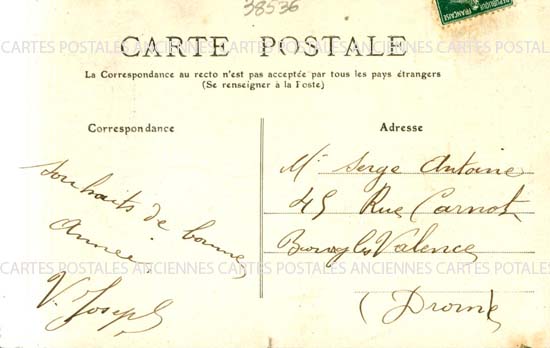 38536
RÉPUBLIQUE FRANÇAISE
CARTE POSTALE
CARTES POSTALES ANCIENNES CARTES POSTALES ANCIENNES CARTES POSTALES
La Correspondance au recto n'est pas acceptée par tous les pays étrangers
(Se renseigner à la Poste)
Correspondance
souhaits de bonne
Année
V. Joseph
Adresse
Mr Serge Antoine
45 Rue Carnot
Bourg les Valence
(Drome)
CARTES POSTALES ANCIENNES CARTES POSTALES ANCIENNES CARTES POTALES